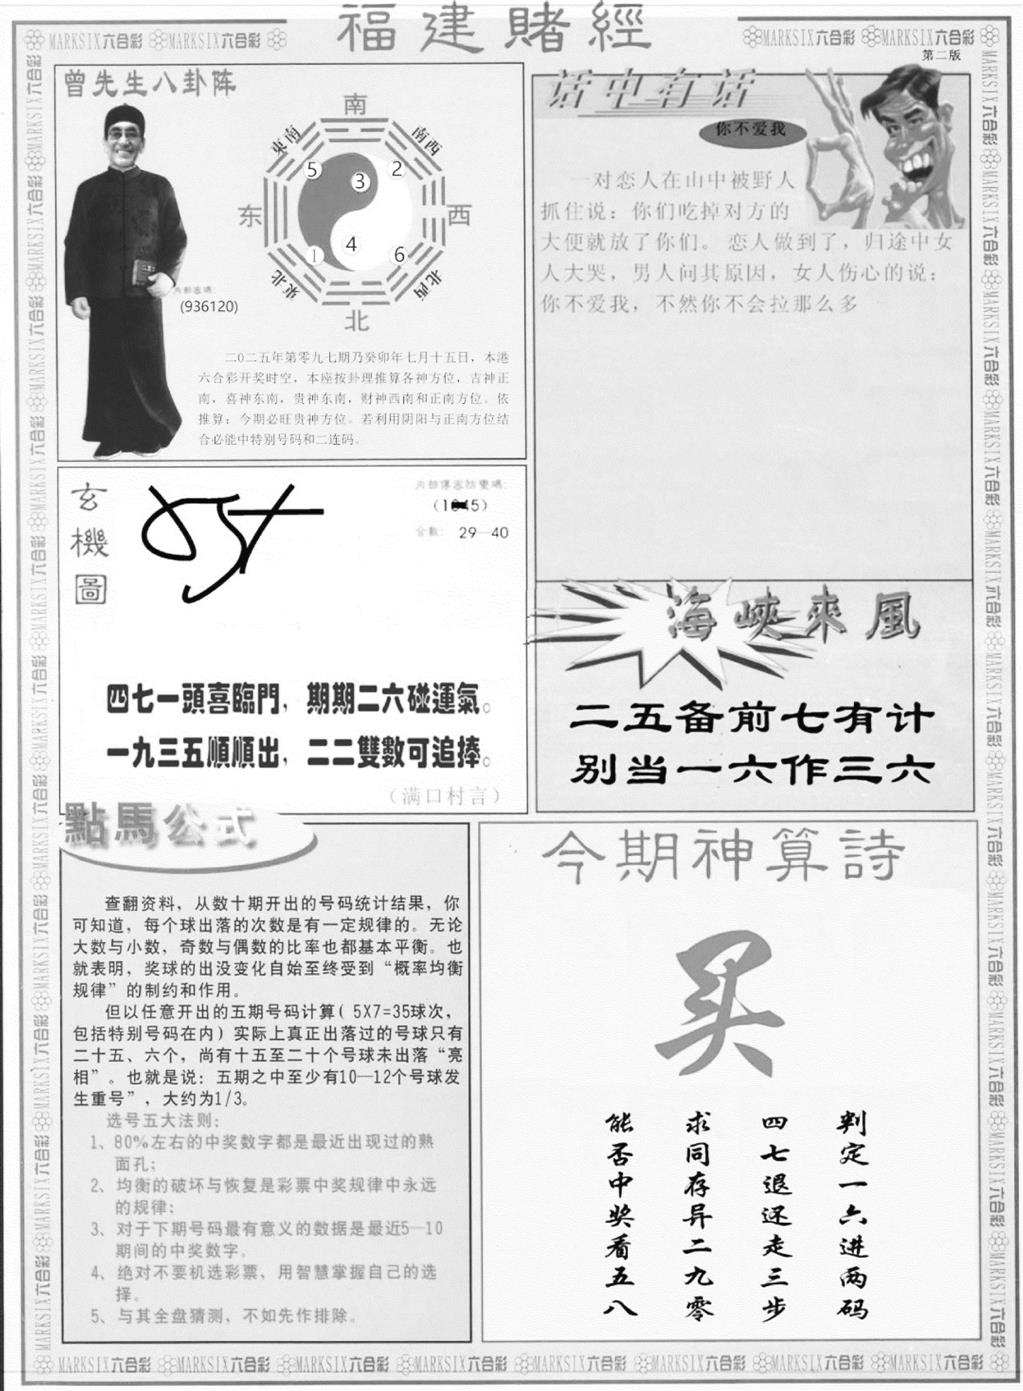 福建賭經
MARKSIX六合彩 MARKSIX六合彩
MARKSIX六合彩 MARKSIX六合彩
第二版
曾先生八卦阵
南
東南
南西
5
3
2
东
西
1
4
6
東北
北西
北
内部密碼:
(936120)
二0二五年第零九七期乃癸卯年七月十五日，本港
六合彩开奖时空，本座按卦理推算各神方位，吉神正
南，喜神东南，贵神东南，财神西南和正南方位。依
推算：今期必旺贵神方位。若利用阴阳与正南方位结
合必能中特别号码和二连码。
话中有话
你不爱我
一对恋人在山中被野人
抓住说：你们吃掉对方的
大便就放了你们。恋人做到了，归途中女
人大哭，男人问其原因，女人伤心的说：
你不爱我，不然你不会拉那么多
玄機圖
内部傳密防變碼:
合數: 29—40
四七一頭喜臨門，期期二六碰運氣。
一九三五順順出，二二雙數可追捧。
（满口村言）
海峽來風
二五备前七有计
别当一六作三六
點馬公式
查翻资料，从数十期开出的号码统计结果，你
可知道，每个球出落的次数是有一定规律的。无论
大数与小数，奇数与偶数的比率也都基本平衡。也
就表明，奖球的出没变化自始至终受到“概率均衡
规律”的制约和作用。
但以任意开出的五期号码计算( 5X7=35球次，
包括特别号码在内) 实际上真正出落过的号球只有
二十五、六个，尚有十五至二十个号球未出落“亮
相”。也就是说：五期之中至少有10—12个号球发
生重号”，大约为1/3。
选号五大法则:
1、80%左右的中奖数字都是最近出现过的熟
面孔;
2、均衡的破坏与恢复是彩票中奖规律中永远
的规律;
3、对于下期号码最有意义的数据是最近5—10
期间的中奖数字。
4、绝对不要机选彩票，用智慧掌握自己的选
择。
5、与其全盘猜测，不如先作排除。
今期神算詩
买
判定一六进两码
四七退还走三步
求同存异二九零
能否中奖看五八
MARKSIX六合彩 MARKSIX六合彩 MARKSIX六合彩 MARKSIX六合彩 MARKSIX六合彩 MARKSIX六合彩 MARKSIX六合彩 MARKSIX六合彩